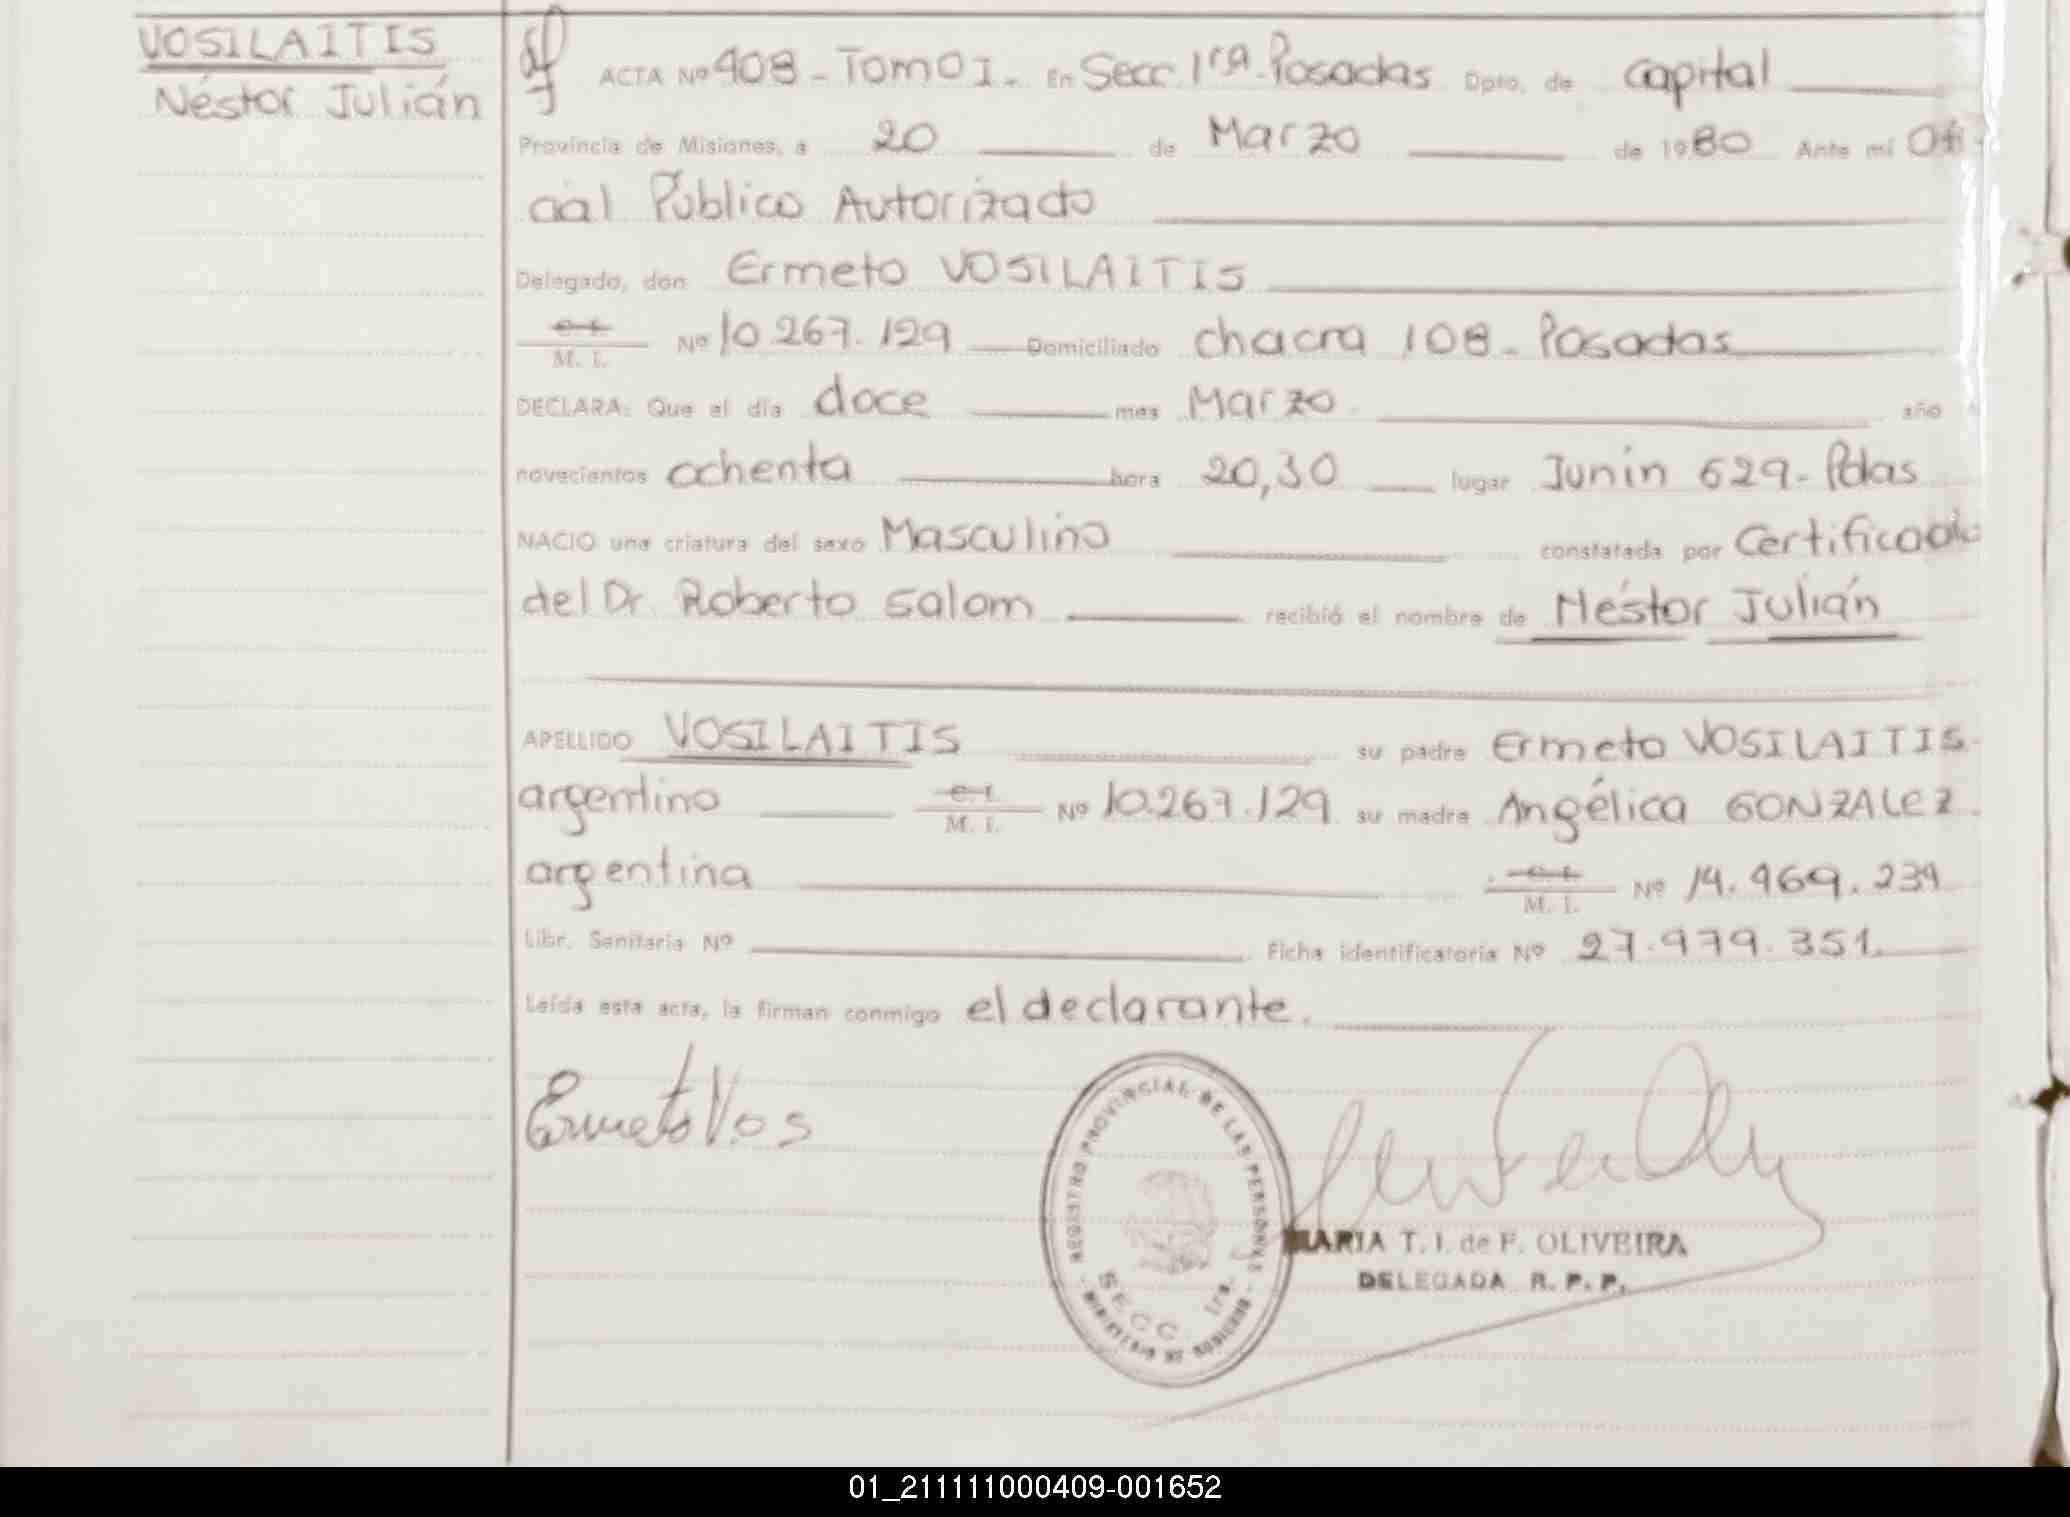 VOSILAITIS
Néstor Julián
ACTA Nº 408 - Tomo I - En Secc. 1ra - Posadas Dpto. de Capital
Provincia de Misiones, a 20 de Marzo de 1980 Ante mi Ofi-
cial Público Autorizado
Delegado, don Ermeto VOSILAITIS
C. I. M. I. Nº 10.267.129 Domiciliado chacra 108 - Posadas
DECLARA: Que el día doce mes Marzo año
novecientos ochenta hora 20,30 lugar Junin 629 - Pdas
NACIO una criatura del sexo Masculino constatada por Certificado
del Dr. Roberto Salom recibió el nombre de Néstor Julián
APELLIDO VOSILAITIS su padre Ermeto VOSILAITIS.
argentino C. I. M. I. Nº 10.267.129 su madre Angélica GONZALEZ.
argentina C. I. M. I. Nº 14.469.239
Libr. Sanitaria Nº Ficha identificatoria Nº 27.979.351.
Leída esta acta, la firman conmigo el declarante.
Ermeto Vos
REGISTRO PROVINCIAL DE LAS PERSONAS
SECC 1ra.
MINISTERIO DE GOBIERNO
MARIA T. I. de F. OLIVEIRA
DELEGADA R. P. P.
01_211111000409-001652